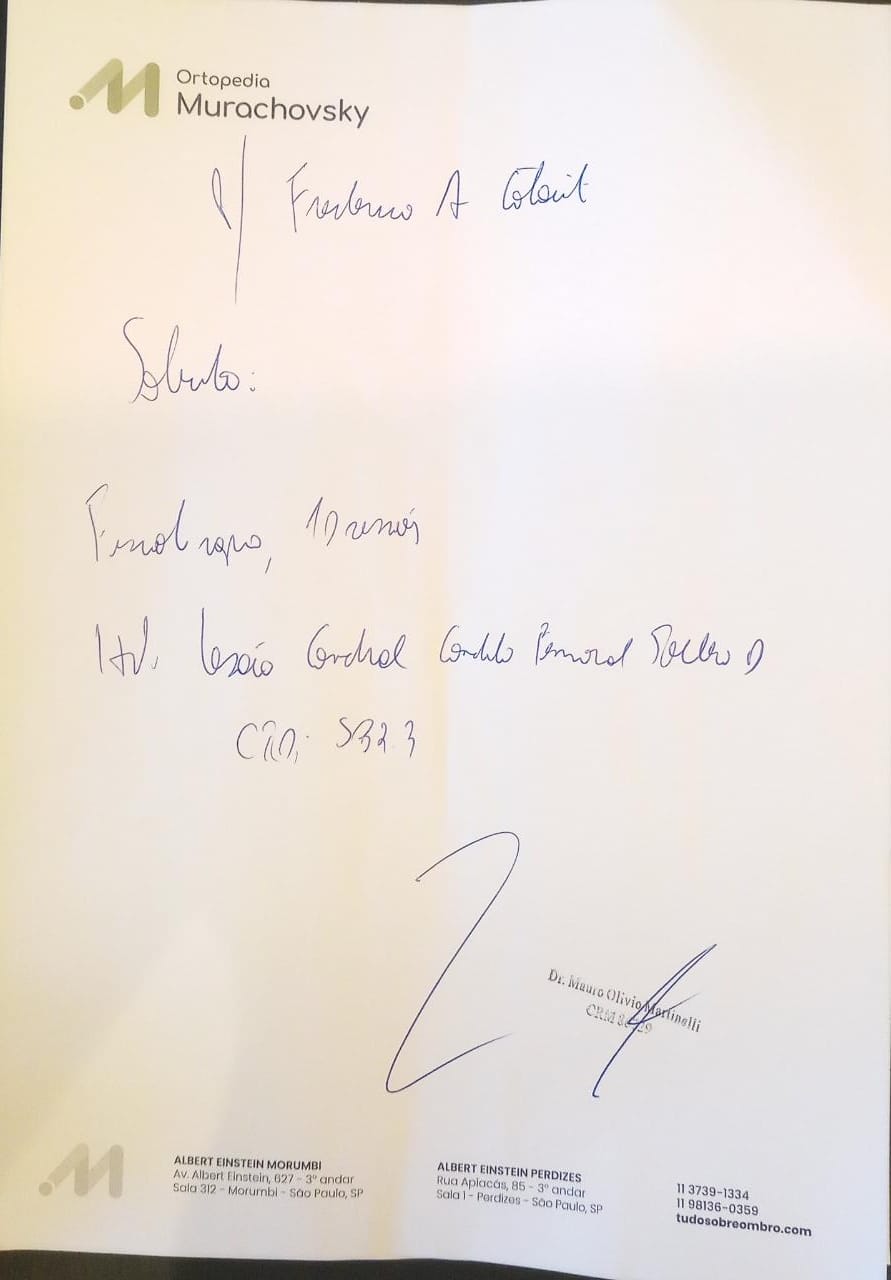 Ortopedia
Murachovsky
p/ Frederico A
Solicito:
Fisioterapia, 10 sessões
HD: Lesão Condral Condilo Femoral Joelho D
CID: S32.3
Dr. Mauro Olivio Martinelli
CRM
ALBERT EINSTEIN MORUMBI
Av. Albert Einstein, 627 - 3º andar
Sala 312 - Morumbi - São Paulo, SP
ALBERT EINSTEIN PERDIZES
Rua Apiacás, 85 - 3º andar
Sala 1 - Perdizes - São Paulo, SP
11 3739-1334
11 98136-0359
tudosobreombro.com